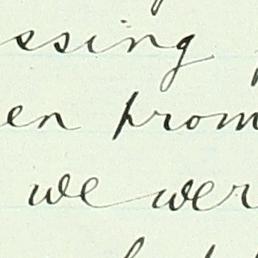 ssing
en prom
we wer